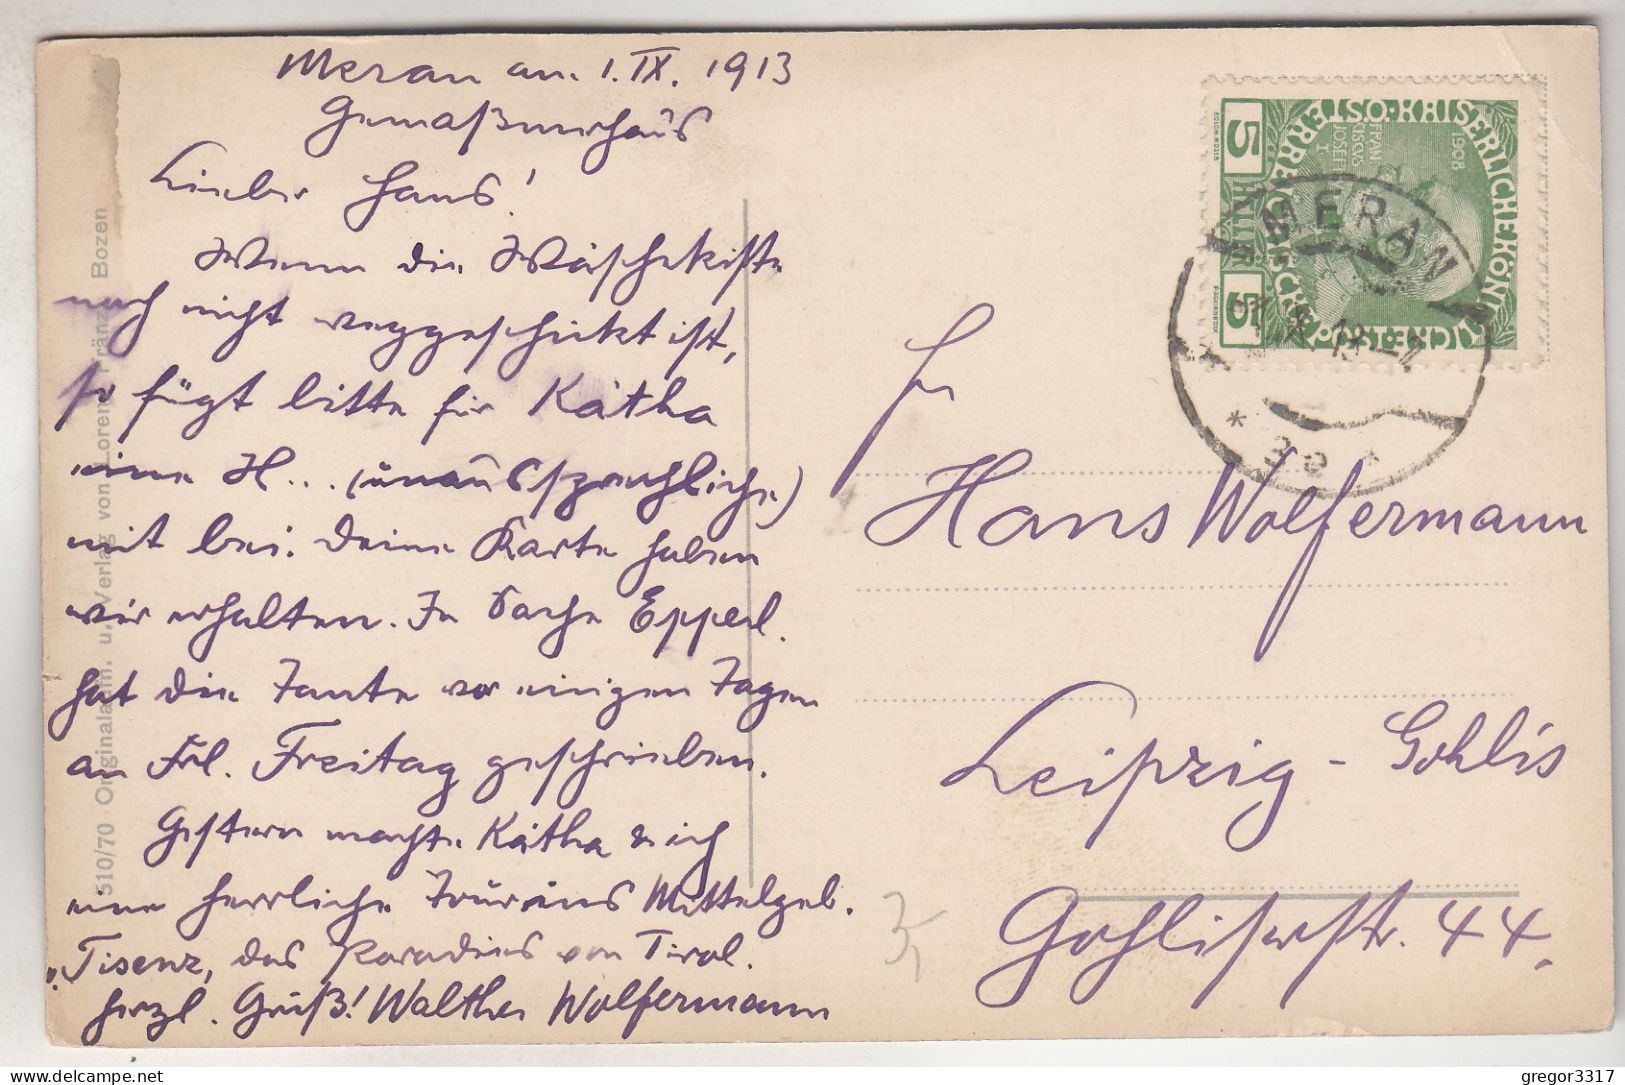 Meran am 1. IX. 1913
Gemaßnerhaus
Lieber Hans!
Wenn die Wäschekiste
noch nicht weggeschickt ist,
so fügt bitte für Kätha
eine H... (unaussprechliche)
mit bei. Deine Karte haben
wir erhalten. In Sache Epperl.
hat die Tante vor einigen Tagen
an Frl. Freitag geschrieben.
Gestern machte Kätha & ich
eine herrliche Tour ins Mittelgeb.
"Tisenz, das Paradies von Tirol.
herzl. Gruß! Walther Wolfermann
510/70 Originalaufn. u. Verlag von Lorenz Fränzl Bozen
Hans Wolfermann
Leipzig - Gohlis
Gohliserstr. 44.
KAISERLICHE KÖNIGLICHE ÖSTERREICHISCHE POST
1908
FRANZ JOSEF I
5 HELLER 5
MERAN
* 3 e *
gregor3317